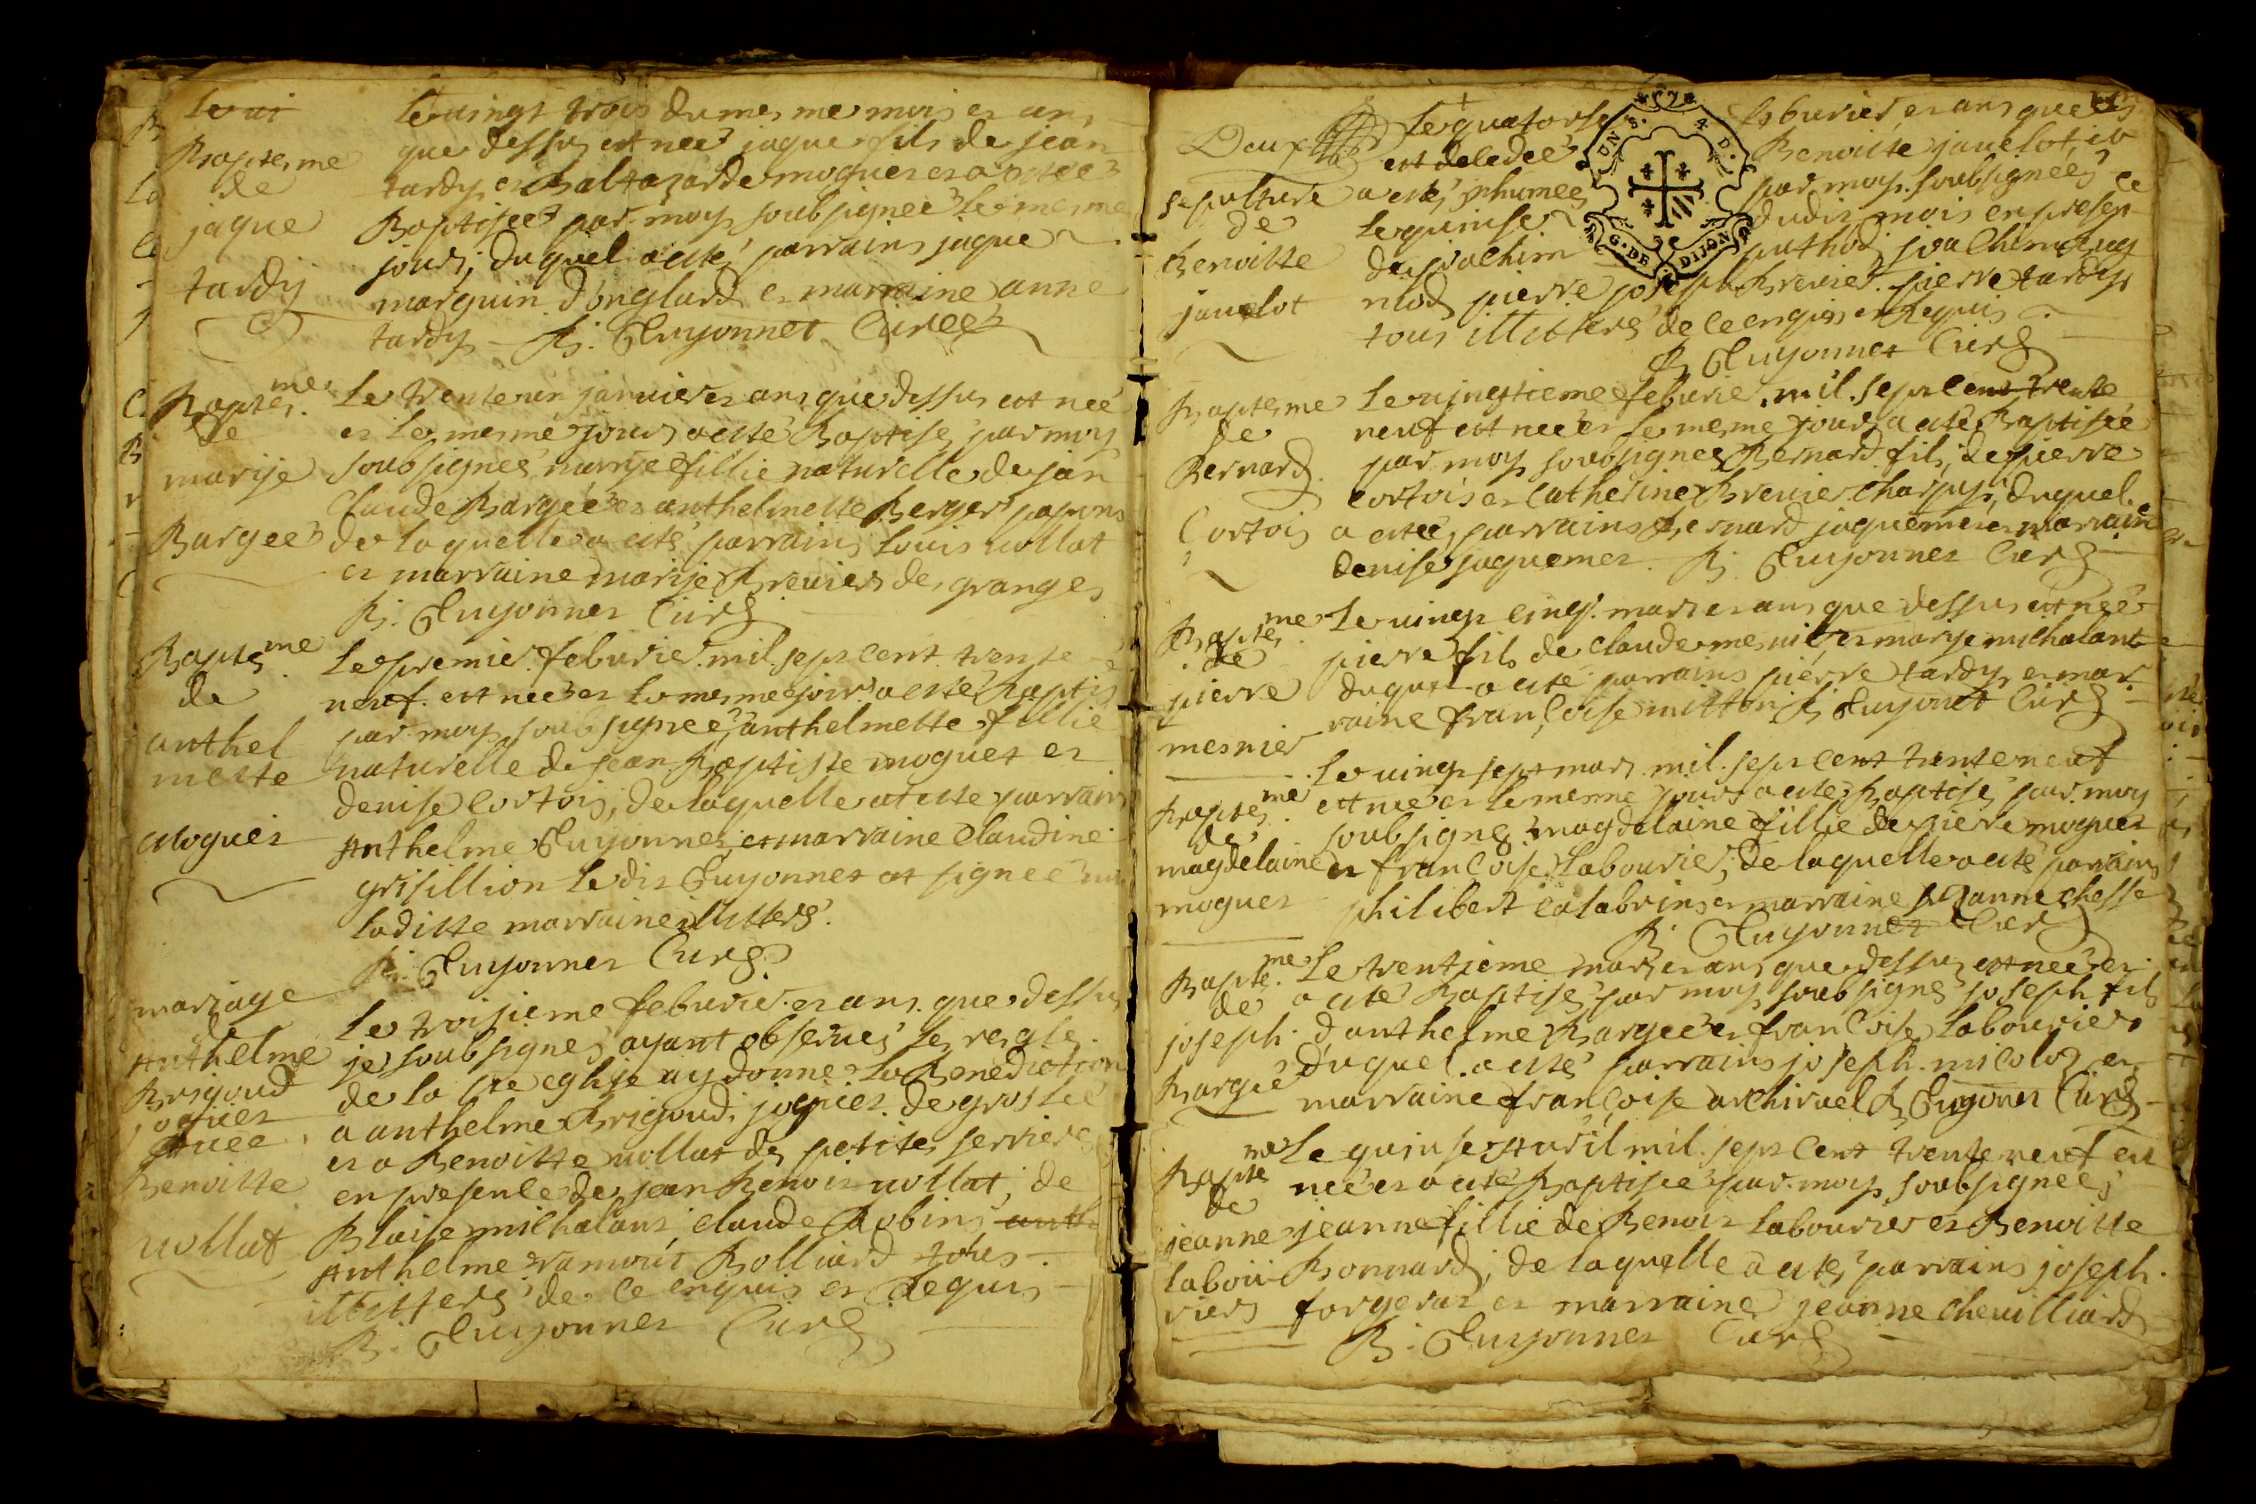 Le vi
Baptesme
de
jaque
tardy
Le vingt trois du mesme mois et an
que dessus est neé jaque fils de jean
tardy et Baltazarde moquet et a esteé
Baptiseé par moy soubsigneé le mesme
jour, duquel a esté parrains jaque
marguin d'onglard et marraine anne
tardy R. Guyonnet Cureé
Baptesme
de
marije
Bargeé
Le trente un janvier et ans que dessus est neé
et le mesme jour a esté Baptisé par moy
soubsigné marije fillie naturelle de jan
Claude Bargeé et anthelmette Berger
de laquelle a esté parrains Louis vollat
et marraine marije Brevier des granges
R. Guyonnet Curé
Baptesme
de
anthel
mette
Moquet
Le premier feburier mil sept cent trente
neuf est neé et le mesme jour a esté Baptis
par moy soubsigneé anthelmette fillie
naturelle de jean Baptiste moquet et
denise Cortois, de laquelle at este parrains
Anthelme Guyonnet, et marraine Claudine
grisillion ledit Guyonnet at signeé
laditte marraine illitteré
R. Guyonnet Curé
mariage
de
Anthelme
Brigoud
joquet
avec
Benoitte
vollat
Le troisieme feburier et ans que dessus
je soubsigné ayant observé les regles
de la ste eglise ay donne la Benediction
a anthelme Brigoud joquet de grosleé
et a Benoitte vollat des petites serrieres
en presence de jean Benoit vollat, de
Blaise milhalant, claude Robin, anth
Anthelme ramoüt Rolliard tous
illitteré de ce enquis et Requis
R. Guyonnet Curé
Deux
sepulture
de
Benoitte
javelot
Le quatorse feburier et ans que
est deledeé Benoitte javelot, et
a esté jnhumeé par moy soubsigneé le
le quinse dudit mois en presen
de joachim
pierre joseph Brevier pierre tardy
tous illitteré de ce enquis et Requis
R. Guyonnet Curé
Baptesme
de
Bernard
Cortois
Le vingtieme feburie mil sept cent trente
neuf est neé et le mesme jour a esté Baptiseé
par moy soubsigné Bernard fils de pierre
cortois et Catherine Brevier charpy, duquel
a esteé parrains Bernard jaquemet et marraine
denise jaquemet R. Guyonnet Curé
Baptesme
de
pierre
mesnier
Le vingt cinq mars et ans que dessus est neé
pierre fils de claude mesnie et marije milhalant
duquel a esté parrains pierre tardy et mar
raine françoise mitton R. Guyonet Curé
Baptesme
de
magdelaine
moquet
Le vingt sept mars mil sept cent trente neuf
est neé et le mesme jour a esté Baptisé par moy
soubsigné magdelaine fillie de pierre moquet
et françoise Labourier, de laquelle a esté parrains
philibert Calabrin et marraine Suzanne chesse
R. Guyonnet Curé
Baptesme
de
joseph
Bargeé
Le trentieme mars et ans que dessus est neé et
a esté Baptisé par moy soubsigné joseph fils
d'anthelme Bargeé et françoise Labourier
duquel a esté parrains joseph micoloz et
marraine françoise archiruel R. Guyonet Curé
Baptesme
de
jeanne
labou
rier
Le quinse Avril mil sept cent trente neuf est
neé et a esté Baptiseé par moy soubsigneé
jeanne fillie de Benoit Labourier et Benoitte
Bonnard, de laquelle a esté parrains joseph
forgerat et marraine jeanne chevilliard
R. Guyonnet Curé
UN S. 4 D.
G. DE DIJON